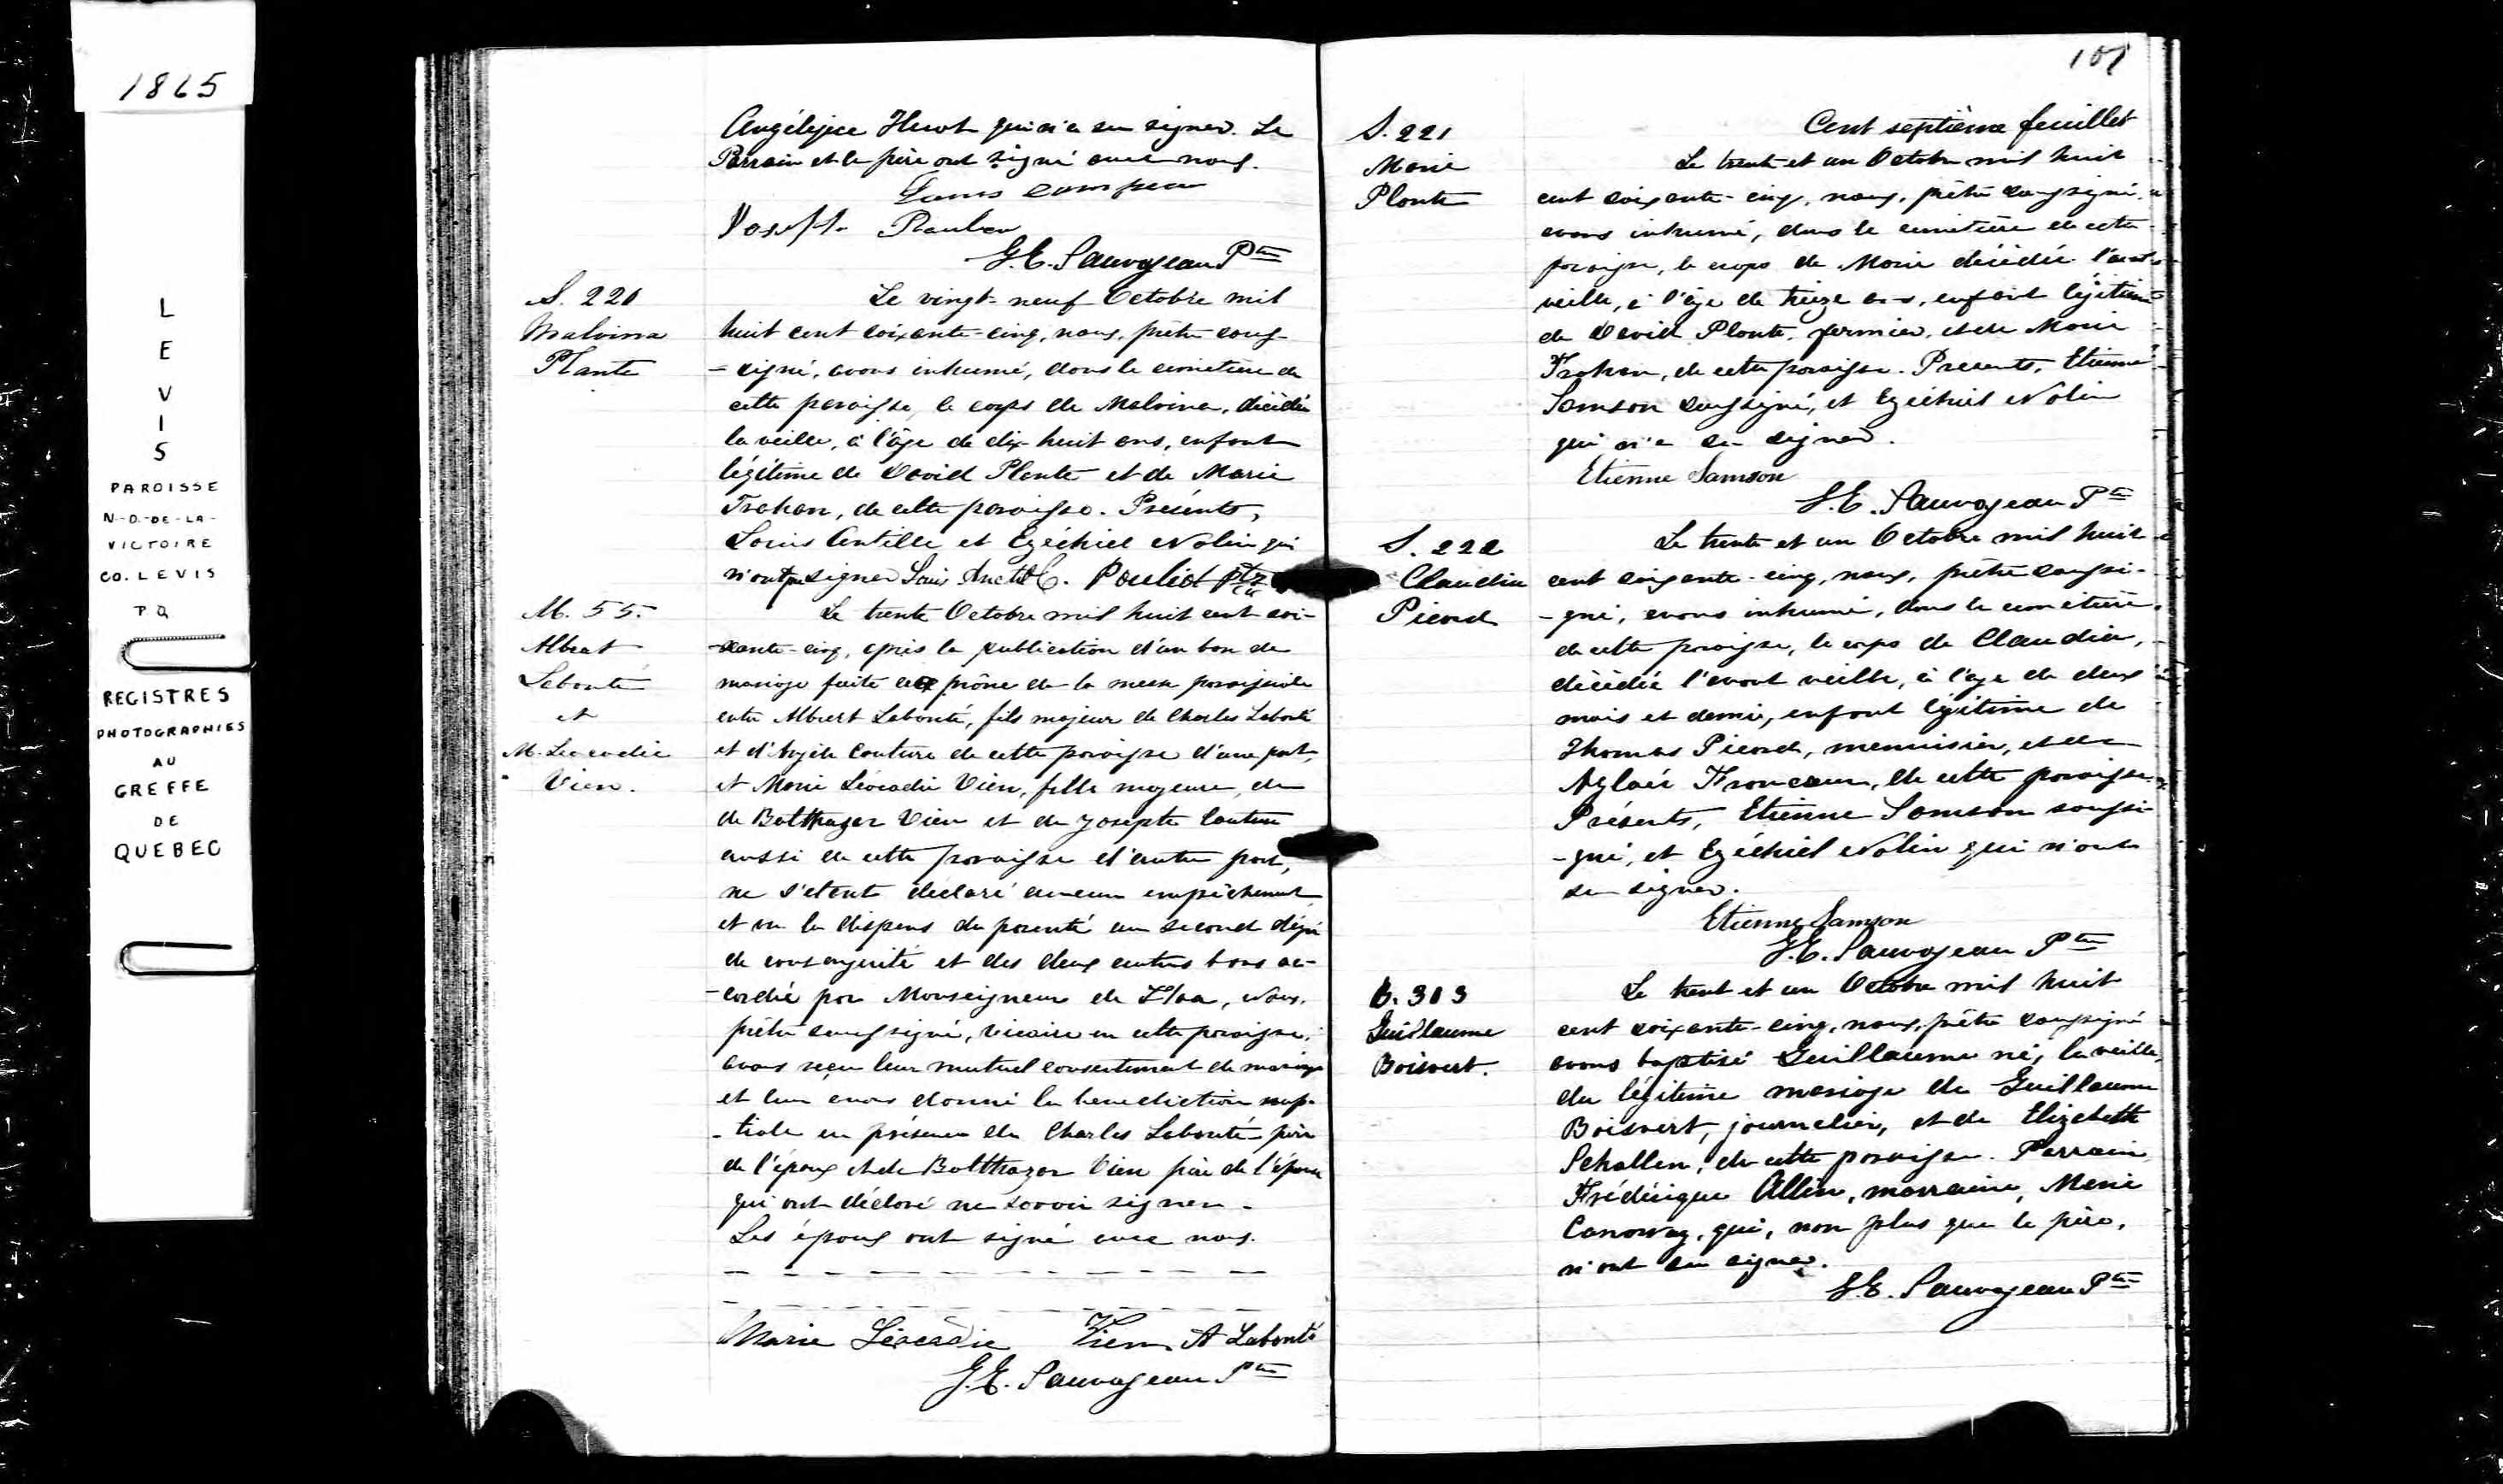 1865
L
E
V
I
S
PAROISSE
N-D-DE-LA-
VICTOIRE
CO. LEVIS
P Q
REGISTRES
PHOTOGRAPHIES
AU
GREFFE
DE
QUEBEC
Angélique Huot qui n'a su signer. Le
Parrain et le père ont signé avec nous.
Joseph
G.E. Sauvageau Ptre
S. 220
Malvina
Plante
Le vingt-neuf Octobre mil
huit cent soixante-cinq, nous, prêtre sous-
=signé, avons inhumé, dans le cimetière de
cette paroisse, le corps de Malvina, décédée
la veille, à l'âge de dix-huit ans, enfant
légitime de David Plante et de Marie
Trahan, de cette paroisse. Présents,
Louis Antille et Ezéchiel Nolin qui
n'ont pu signer Louis C. Pouliot ptre
M. 55.
Albert
Labonté
et
M. Léocadie
Vien.
Le trente Octobre mil huit cent soi-
-xante-cinq, après la publication d'un ban de
mariage faite au prône de la messe paroissiale
entre Albert Labonté, fils majeur de Charles Labonté
et d'Angèle Couture de cette paroisse d'une part,
et Marie Léocadie Vien, fille majeure, de
de Balthazar Vien et de Josepte Couture
aussi de cette paroisse d'autre part,
ne s'étant déclaré aucun empêchement
et vu la dispens de parenté au second dégré
de consanguinité et des deux autres bans ac-
-cordée par Monseigneur de Tloa, Nous,
prêtre soussigné, vicaire en cette paroisse,
avons reçu leur mutuel consentement de mariage
et leur avons donné la bénédiction nup-
-tiale en présence de Charles Labonté père
de l'époux et de Balthazar Vien père de l'épouse
qui ont déclaré ne savoir signer.
Les époux ont signé avec nous.
Marie Léocadie Vien A Labonté
G.E. Sauvageau Ptre
107
Cent septième feuillet
S. 221
Marie
Plante
Le trente et un Octobre mil huit
cent soixante-cinq, nous, prêtre soussigné,
avons inhumé, dans le cimetière de cette
paroisse, le corps de Marie décédée l'avant-
veille, à l'âge de treize ans, enfant légitime
de David Plante, fermier, et de Marie
Trahan, de cette paroisse. Présents, Etienne
Samson soussigné, et Ezéchiel Nolin
qui n'a su signer.
Etienne Samson
G.E. Sauvageau Ptre
S. 222
Claudia
Picard
Le trente et un Octobre mil huit
cent soixante-cinq, nous, prêtre soussi-
-gné, avons inhumé, dans le cimetière
de cette paroisse, le corps de Claudia,
décédée l'avant veille, à l'age de deux
mois et demie, enfant légitime de
Thomas Picard, menuisier, et de
Aglaée Francoeur, de cette paroisse.
Présents, Etienne Samson soussi-
-gné, et Ezéchiel Nolin qui n'ont
su signer.
Etienne Samson
G.E. Sauvageau Ptre
B. 303
Guillaume
Boisvert.
Le trent et un Octobre mil huit
cent soixante-cinq, nous, prêtre soussigné
avons baptisé Guillaume né, la veille,
du légitime mariage de Guillaume
Boisvert, journalier, et de Elizabeth
Schallen, de cette paroisse. Parrain,
Frédérique Allen, marraine, Marie
Canoway, qui, non plus que le père,
n'ont su signer.
G.E. Sauvageau Ptre